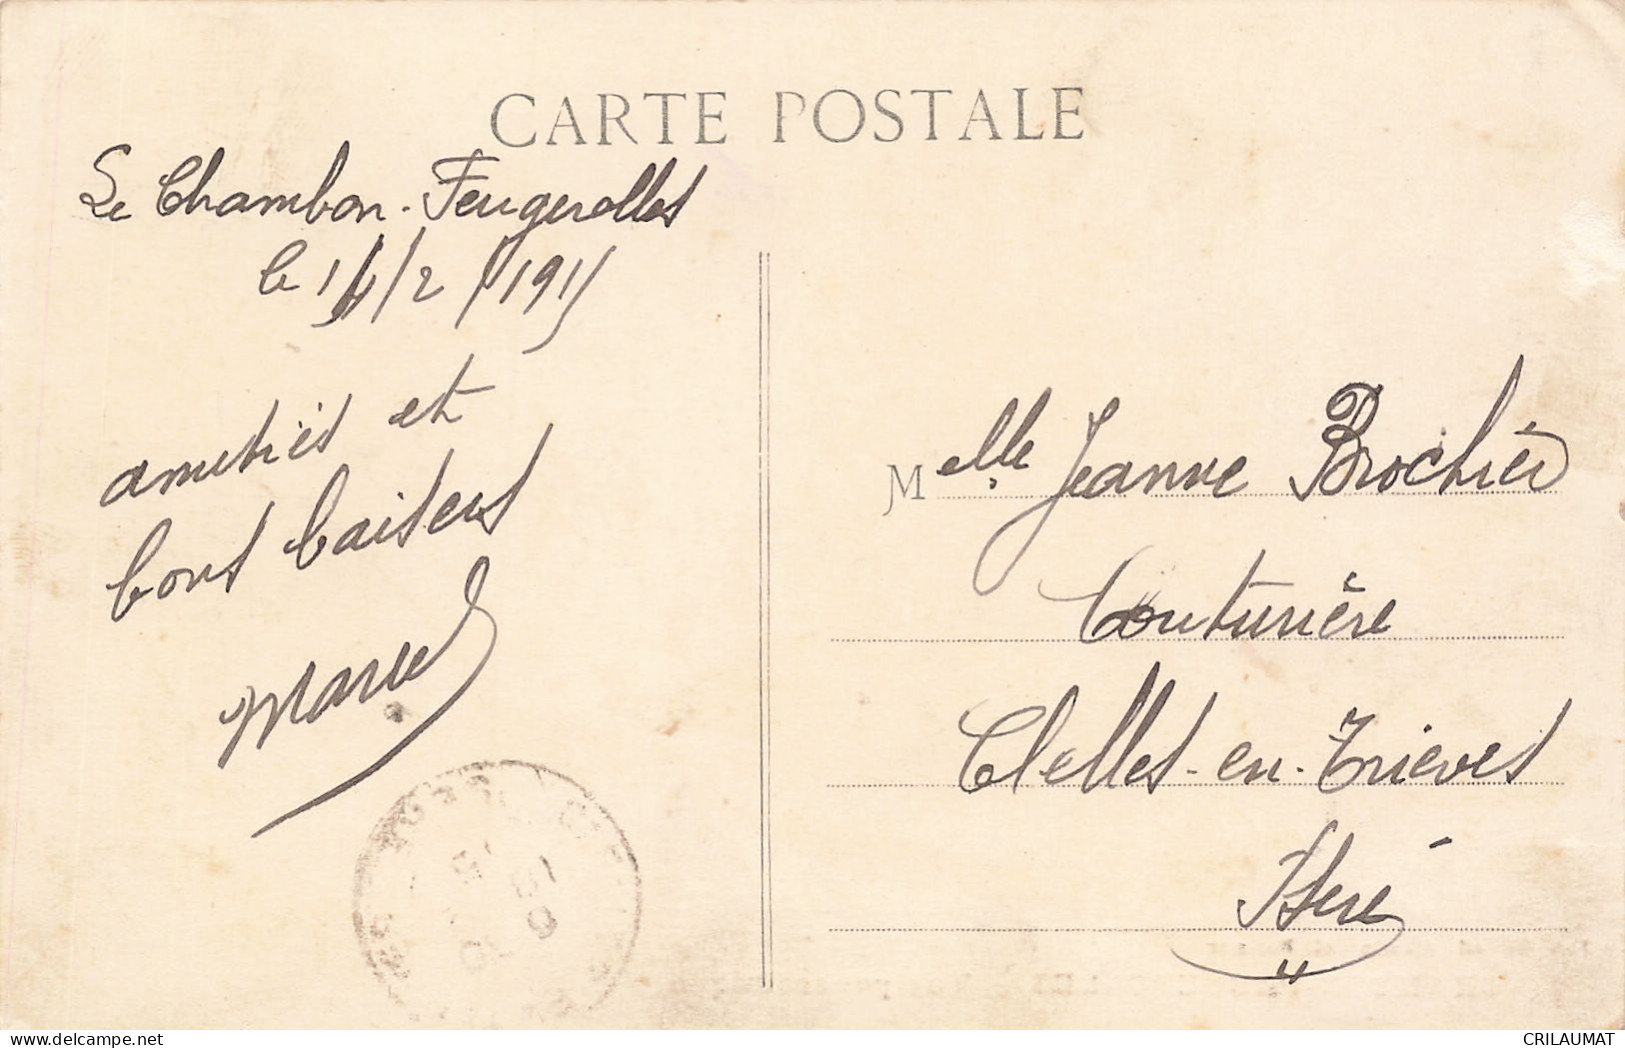 CARTE POSTALE
Le Chambon-Feugerolles
le 14/2/1915
amitiés et
bons baisers
Marcel
Melle Jeanne Brochier
Couturière
Clelles-en-Trieves
Isère
CRILAUMAT